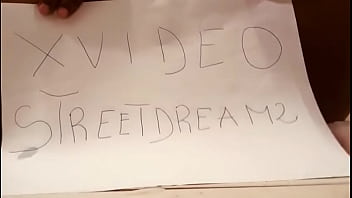 XVIDEO
STREETDREAM2